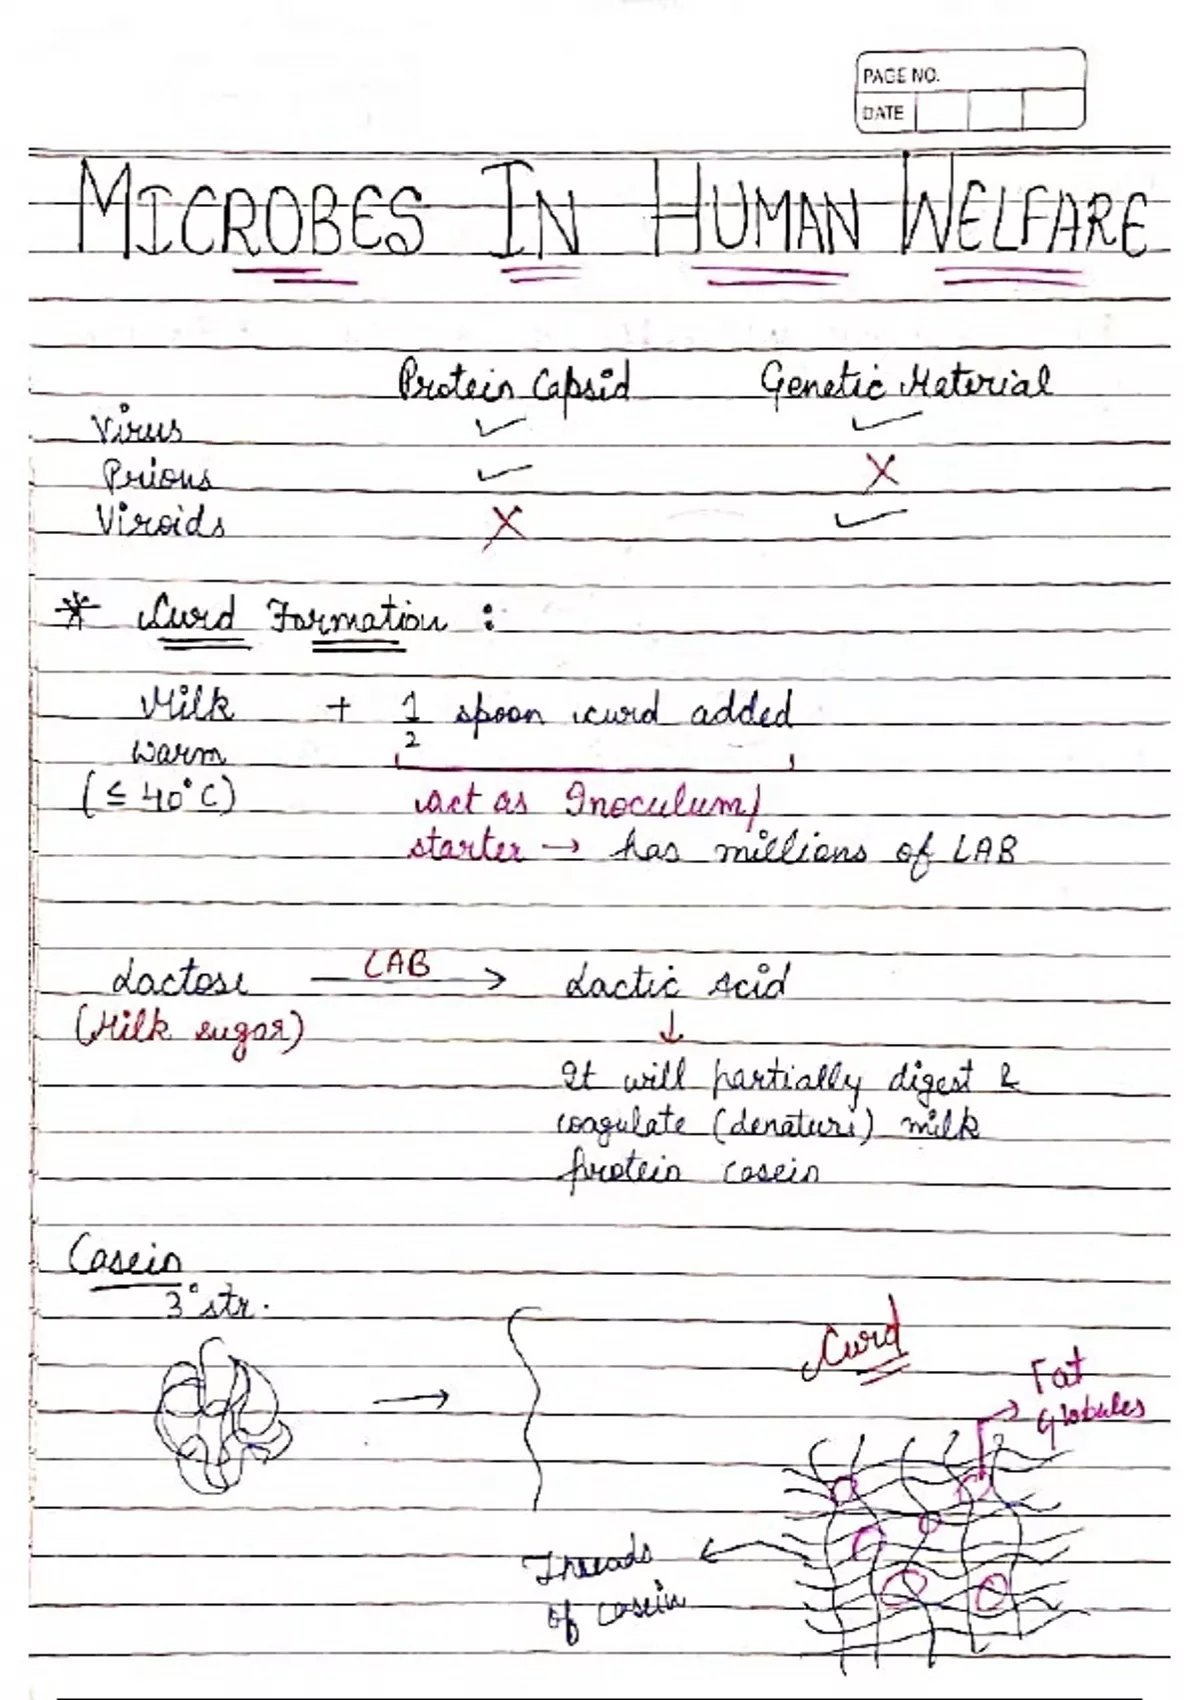 PAGE NO.
DATE
MICROBES IN HUMAN WELFARE
Protein Capsid Genetic Material
Virus ✓ ✓
Prions ✓ X
Viroids X ✓
* Curd Formation :
Milk + 1/2 spoon curd added
warm
(≤ 40°C) act as Inoculum/
starter → has millions of LAB
Lactose LAB → Lactic Acid
(Milk sugar) ↓
It will partially digest &
coagulate (denature) milk
protein casein
Casein
3° str.
→
Curd
Fat
Globules
Threads
of casein